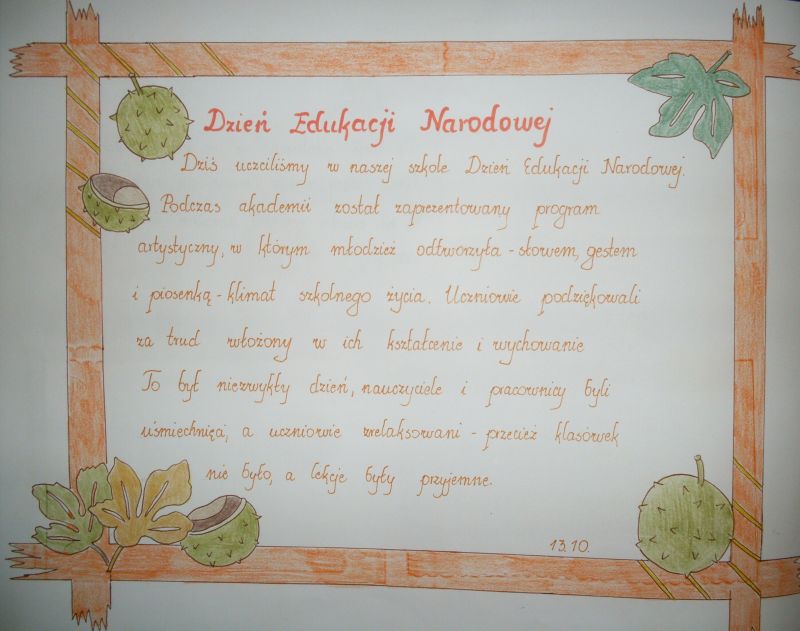 Dzień Edukacji Narodowej
Dziś uczciliśmy w naszej szkole Dzień Edukacji Narodowej.
Podczas akademii został zaprezentowany program
artystyczny, w którym młodzież odtworzyła - słowem, gestem
i piosenką - klimat szkolnego życia. Uczniowie podziękowali
za trud włożony w ich kształcenie i wychowanie
To był niezwykły dzień, nauczyciele i pracownicy byli
uśmiechnięci, a uczniowie zrelaksowani - przecież klasówek
nie było, a lekcje były przyjemne.
13.10.